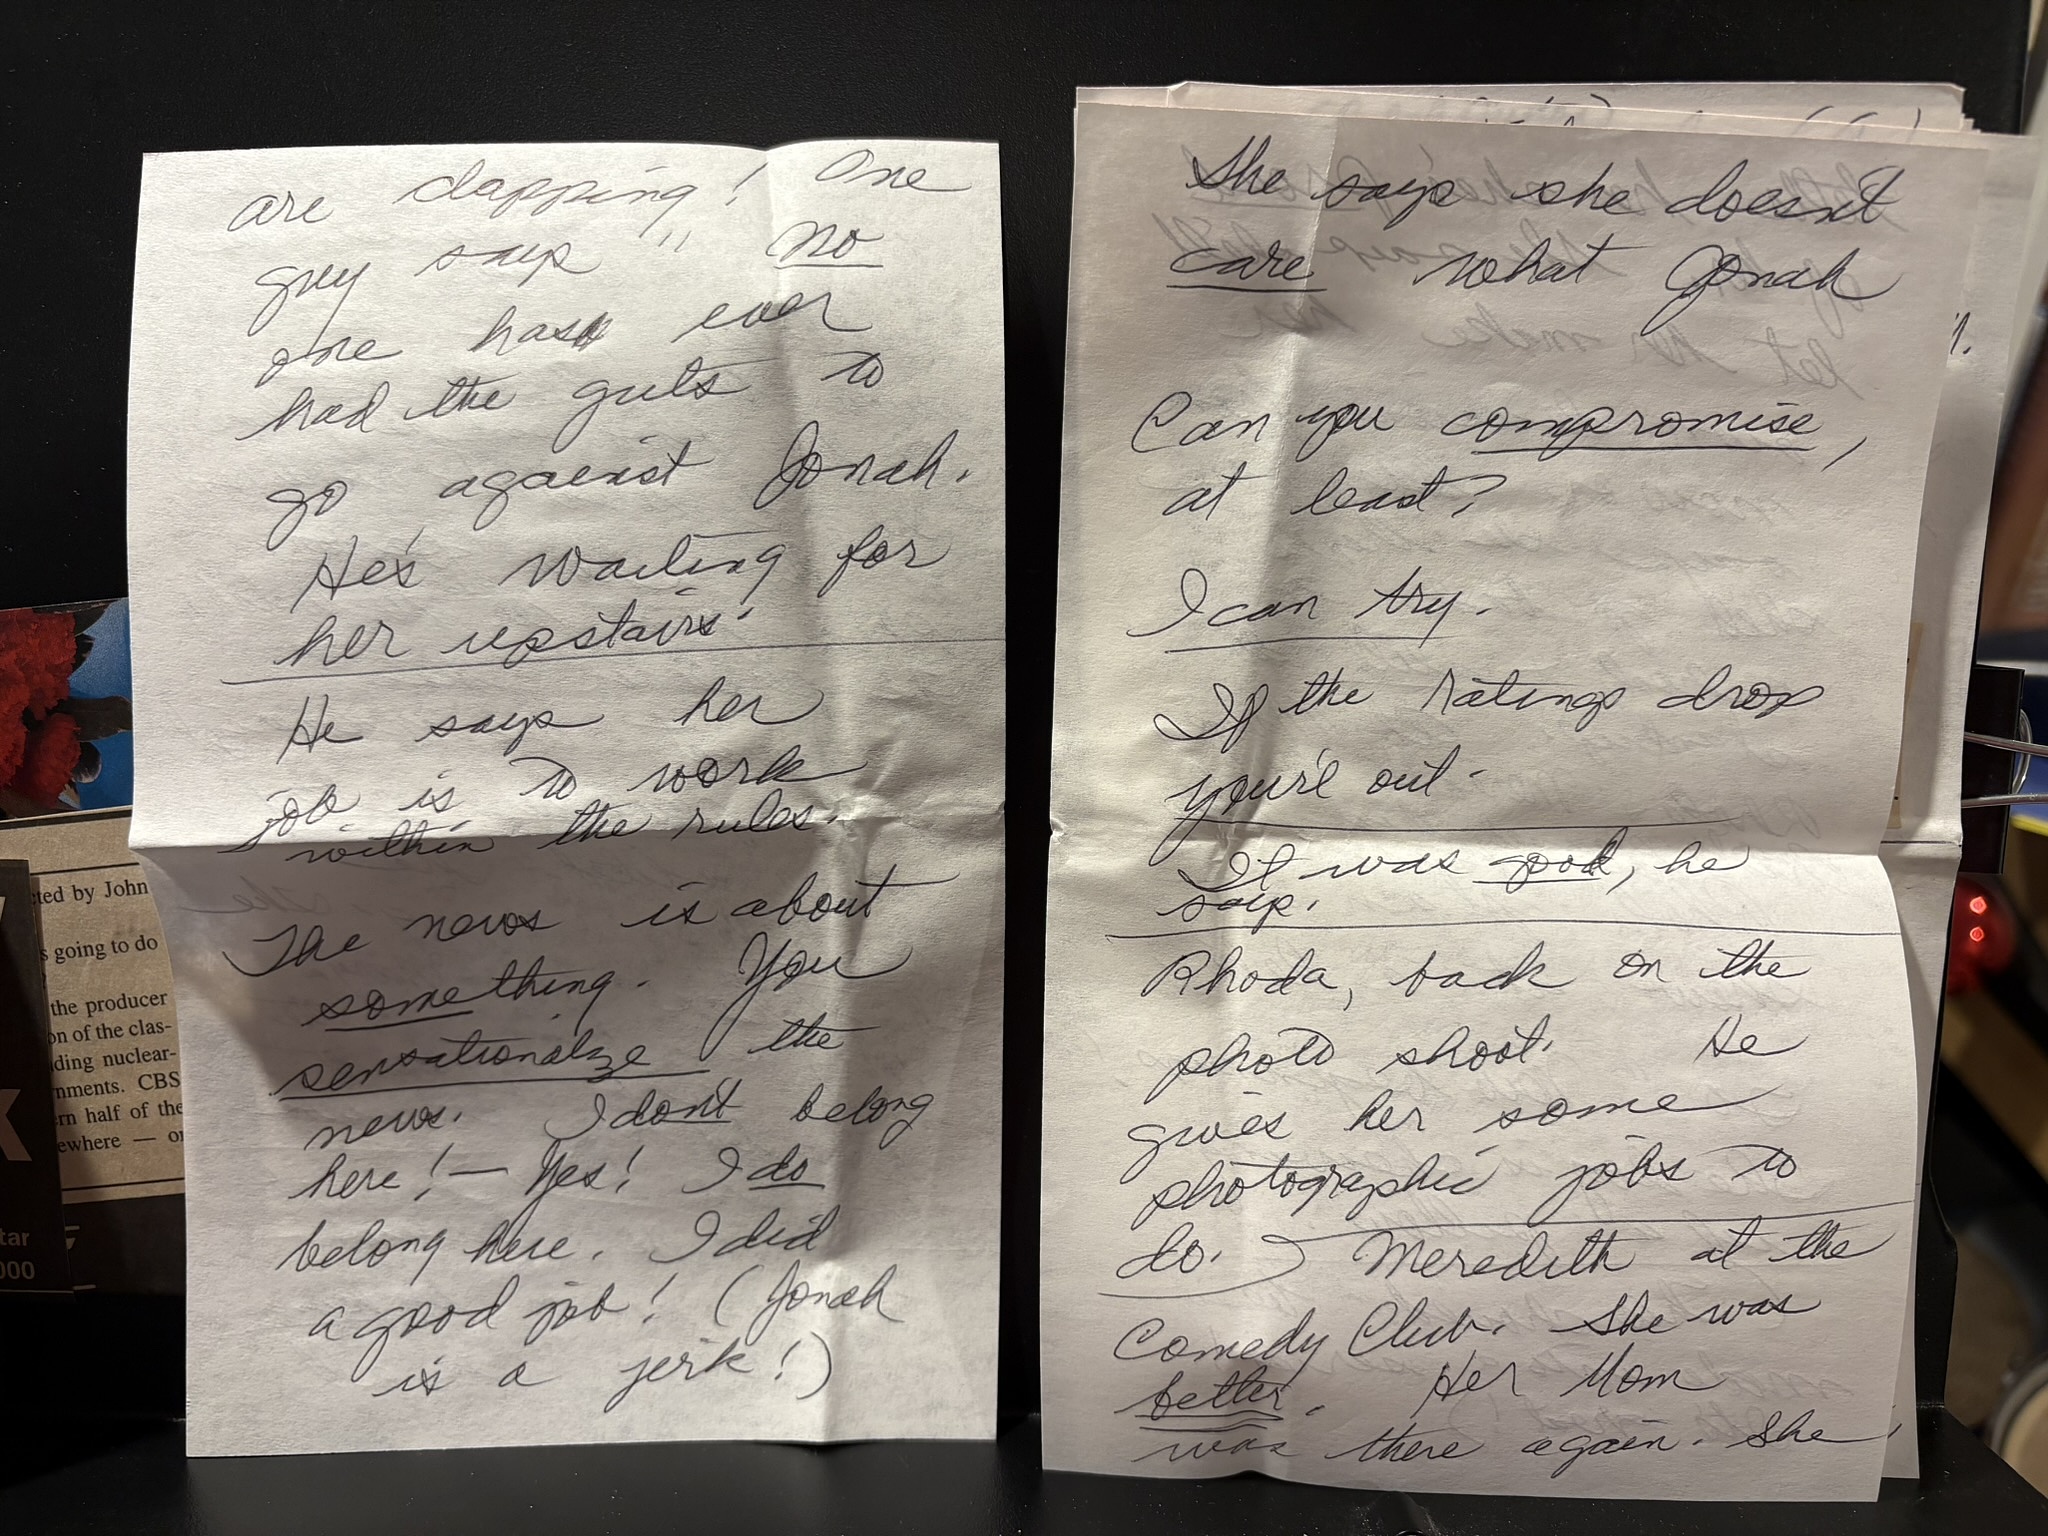 are clapping! One
guy says " No
one has ever
had the guts to
go against Jonah.
He's waiting for
her upstairs.
He says her
job is to work
within the rules.
The news is about
something. You
sensationalze the
news. I don't belong
here! — Yes! I do
belong here. I did
a good job! (Jonah
is a jerk!)
She says she doesn't
care what Jonah
Can you compromise,
at least?
I can try.
If the ratings drop
you'll out.
It was good, he
says.
Rhoda, back on the
photo shoot. He
gives her some
photographic jobs to
do. Meredith at the
Comedy Club. She was
better. Her Mom
was there again. She
cted by John
s going to do
the producer
on of the clas-
ding nuclear-
nments. CBS
ern half of the
ewhere — or
tar
000